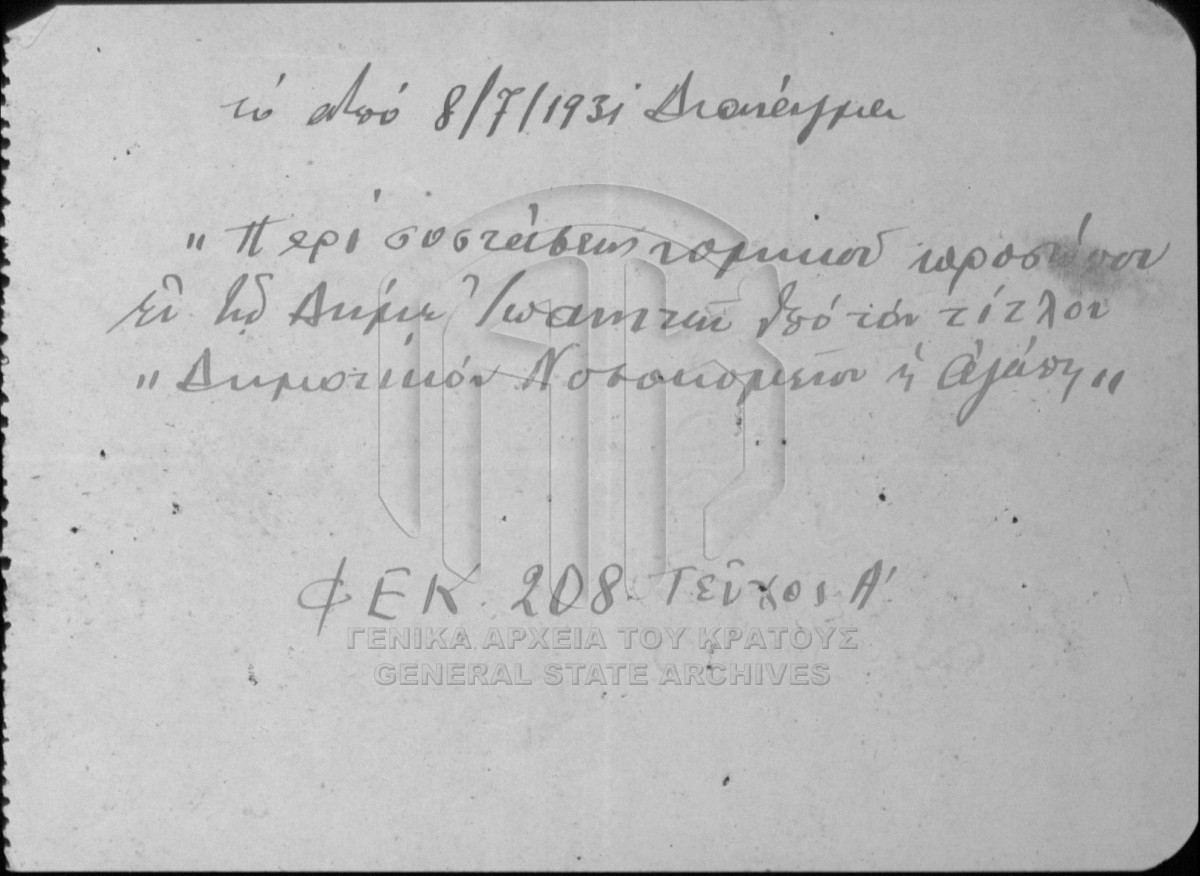 τό από 8/7/1931 Διάταγμα
„ Περί συστάσεως νομικού προσώπου
εν τω Δήμω Ιωαννιτών υπό τον τίτλον
„ Δημοτικόν Νοσοκομείον η Αγάπη „
ΦΕΚ 208 Τεῦχος Α'
ΓΕΝΙΚΑ ΑΡΧΕΙΑ ΤΟΥ ΚΡΑΤΟΥΣ
GENERAL STATE ARCHIVES